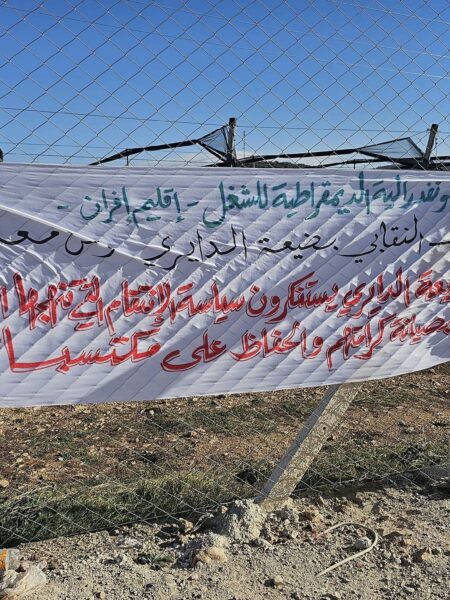 ونفدرالية الديمقراطية للشغل - إقليم إفران -
النقابي بضيعة الدايري
الدايري يستنكرون سياسة الإنتقام التي تنهجها
كرامتهم والحفاظ على مكتسبا